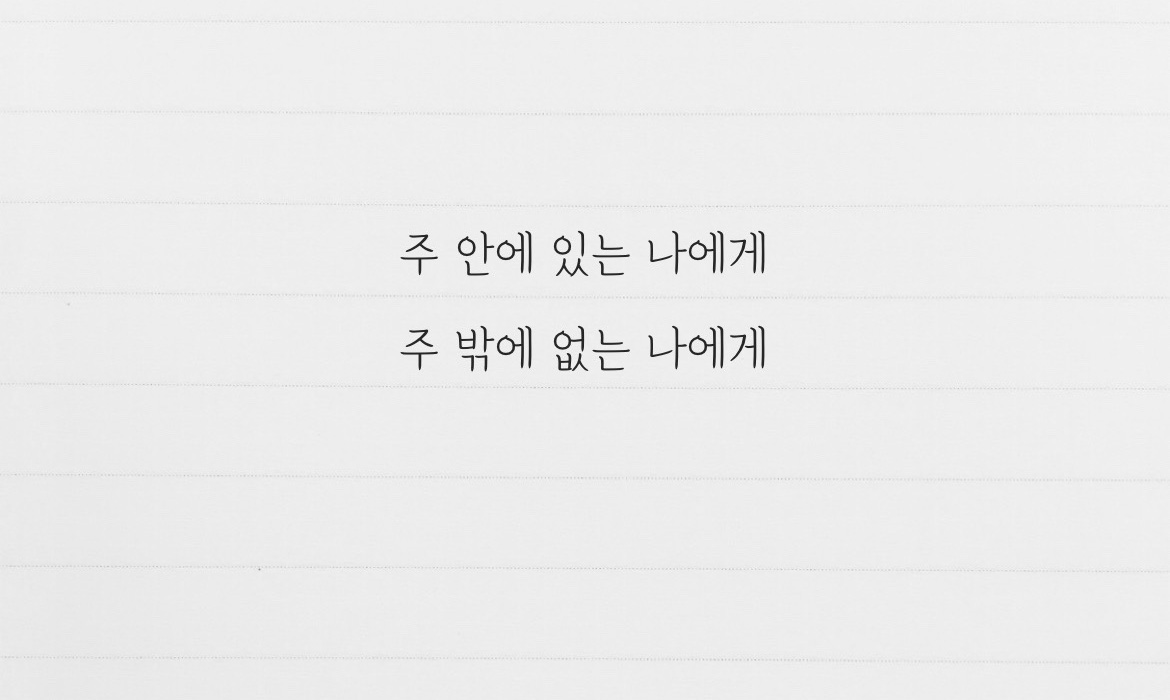 주 안에 있는 나에게
주 밖에 없는 나에게